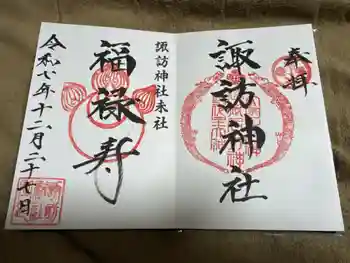 奉拝
諏訪神社
諏訪神社末社
福禄寿
令和七年十二月二十七日